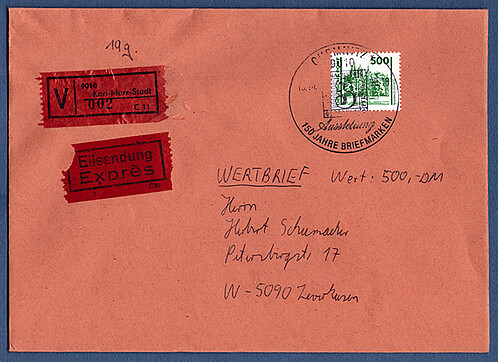 19g.
9010
Karl-Marx-Stadt
V 002 C 11
Eilsendung
Exprès
CHEMNITZ
9010
500
Ausstellung
150 JAHRE BRIEFMARKEN
WERTBRIEF Wert: 500,-DM
Herrn
Herbert Schumacher
Petersbergstr. 17
W-5090 Leverkusen